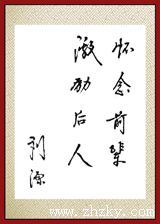 怀念前辈
激励后人
刘源
www.zhzky.com